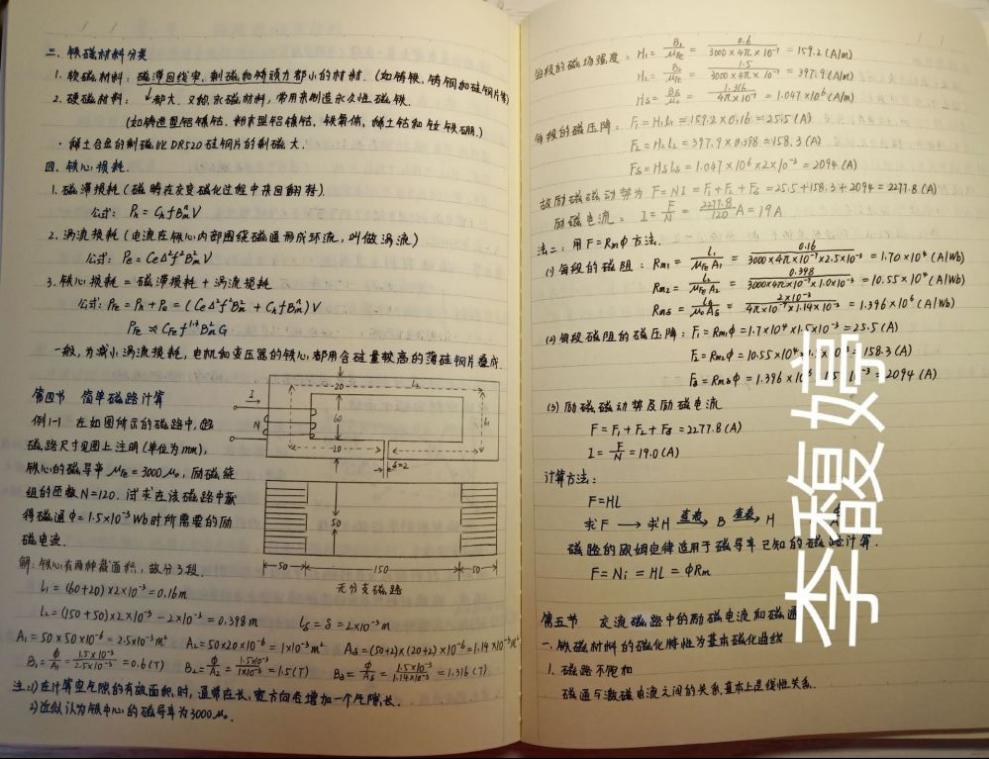 二、铁磁材料分类
1. 软磁材料：磁滞回线窄、剩磁和矫顽力都小的材料.（如铸铁、铸钢和硅钢片等）
2. 硬磁材料： 都大. 又称永磁材料，常用来制造永久性磁铁.
（如铸造型铝镍钴、粉末型铝镍钴、铁氧体、稀土钴和钕铁硼.）
·稀土合金的剩磁比DR520硅钢片的剩磁大.
四、铁心损耗.
1. 磁滞损耗（磁畴在交变磁化过程中来回翻转）.
公式: Pₕ = Cₕ f Bₘⁿ V
2. 涡流损耗（电流在铁心内部围绕磁通形成环流，叫做涡流）
公式: Pe = Ce Δ² f² Bₘ² V
3. 铁心损耗 = 磁滞损耗 + 涡流损耗
公式: P_Fe = Pₕ + Pe = (Ce Δ² f² Bₘ² + Cₕ f Bₘⁿ) V
P_Fe ≈ C_Fe f^1.3 Bₘ² G
一般，为减小涡流损耗，电机和变压器的铁心都用含硅量较高的薄硅钢片叠成.
第四节 简单磁路计算
例1-1 在如图所示的磁路中，
磁路尺寸见图上注明（单位为mm），
铁心的磁导率μ_Fe = 3000μ₀，励磁绕
组的匝数N=120. 试求在该磁路中获
得磁通Φ=1.5×10⁻³Wb时所需要的励
磁电流.
I
N
20
l₂
60
20
l₁
δ=2
50
50
150
50
无分支磁路
解: 铁心有两种截面积，故分3段.
l₁ = (60+20)×2×10⁻³ = 0.16m
l₂ = (150+50)×2×10⁻³ − 2×10⁻³ = 0.398m l_δ = δ = 2×10⁻³m
A₁ = 50×50×10⁻⁶ = 2.5×10⁻³m² A₂ = 50×20×10⁻⁶ = 1×10⁻³m² A_δ = (50+2)×(20+2)×10⁻⁶ = 1.14×10⁻³m²
B₁ = Φ/A₁ = 1.5×10⁻³/2.5×10⁻³ = 0.6(T) B₂ = Φ/A₂ = 1.5×10⁻³/1×10⁻³ = 1.5(T) B_δ = Φ/A_δ = 1.5×10⁻³/1.14×10⁻³ = 1.316(T)
注: 1)在计算空气隙的有效面积时，通常在长、宽方向各增加一个气隙长.
2)近似认为铁中心的磁导率为3000μ₀.
每段的磁场强度: H₁ = B₁/μ_Fe = 0.6/3000×4π×10⁻⁷ = 159.2(A/m)
H₂ = B₂/μ_Fe = 1.5/3000×4π×10⁻⁷ = 397.9(A/m)
H_δ = B_δ/μ₀ = 1.316/4π×10⁻⁷ = 1.047×10⁶(A/m)
每段的磁压降: F₁ = H₁l₁ = 159.2×0.16 = 25.5(A)
F₂ = H₂l₂ = 397.9×0.398 = 158.3(A)
F_δ = H_δl_δ = 1.047×10⁶×2×10⁻³ = 2094(A)
故励磁磁动势为 F = NI = F₁+F₂+F_δ = 25.5+158.3+2094 = 2277.8(A)
励磁电流: I = F/N = 2277.8/120 A = 19A
法二: 用F=RmΦ方法.
(1) 每段的磁阻: Rm₁ = l₁/μ_Fe A₁ = 0.16/3000×4π×10⁻⁷×2.5×10⁻³ = 1.70×10⁴(A/Wb)
Rm₂ = l₂/μ_Fe A₂ = 0.398/3000×4π×10⁻⁷×1.0×10⁻³ = 10.55×10⁴(A/Wb)
Rmδ = l_δ/μ₀A_δ = 2×10⁻³/4π×10⁻⁷×1.14×10⁻³ = 1.396×10⁶(A/Wb)
(2) 每段磁阻的磁压降: F₁ = Rm₁Φ = 1.7×10⁴×1.5×10⁻³ = 25.5(A)
F₂ = Rm₂Φ = 10.55×10⁴ = 158.3(A)
F_δ = RmδΦ = 1.396× = 2094(A)
(3) 励磁磁动势及励磁电流
F = F₁+F₂+F_δ = 2277.8(A)
I = F/N = 19.0(A)
计算方法:
F=HL
求F → 求H → B → H
磁路的欧姆定律适用于磁导率已知的磁路计算.
F = Ni = HL = ΦRm
第五节 交流磁路中的励磁电流和磁通
一、铁磁材料的磁化特性为基本磁化曲线
1. 磁路不饱和
磁通与激磁电流之间的关系基本上是线性关系.
李馥婷